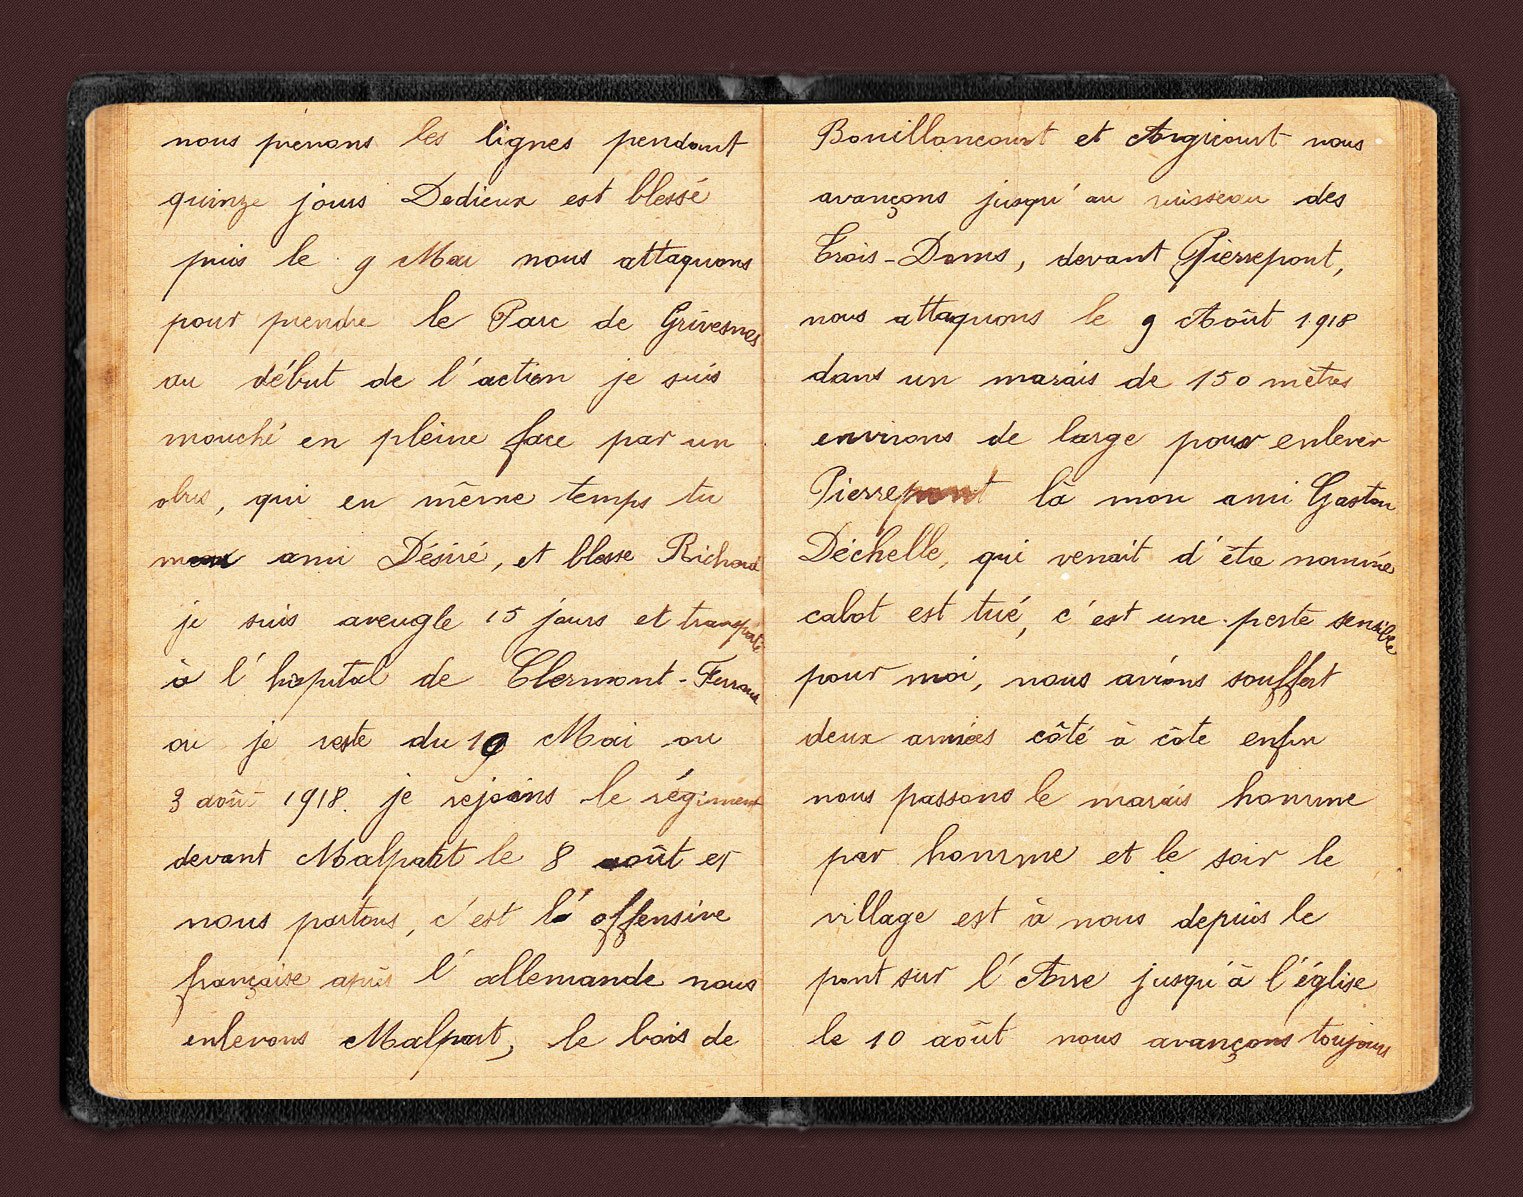 nous prenons les lignes pendant
quinze jours Dedieux est blessé
puis le 9 Mai nous attaquons
pour prendre le Parc de Grivesnes
au début de l'action je suis
mouché en pleine face par un
obus, qui en même temps tu
mon ami Désiré, et blesse Richard
je suis aveugle 15 jours et transporté
à l'hopital de Clermont-Ferrand
ou je reste du 19 Mai au
3 août 1918. je rejoins le régiment
devant Malpart le 8 août et
nous partons, c'est l'offensive
française après l'allemande nous
enlevons Malpart, le bois de
Bouillancourt et Argicourt nous
avançons jusqu'au ruisseau des
Trois-Doms, devant Pierrepont,
nous attaquons le 9 Août 1918
dans un marais de 150 mètres
environs de large pour enlever
Pierrepont là mon ami Gaston
Déchelle, qui venait d'être nommé
cabot est tué, c'est une perte sensible
pour moi, nous avions souffert
deux années côté à côte enfin
nous passons le marais homme
par homme et le soir le
village est à nous depuis le
pont sur l'Avre jusqu'à l'église
le 10 août nous avançons toujours